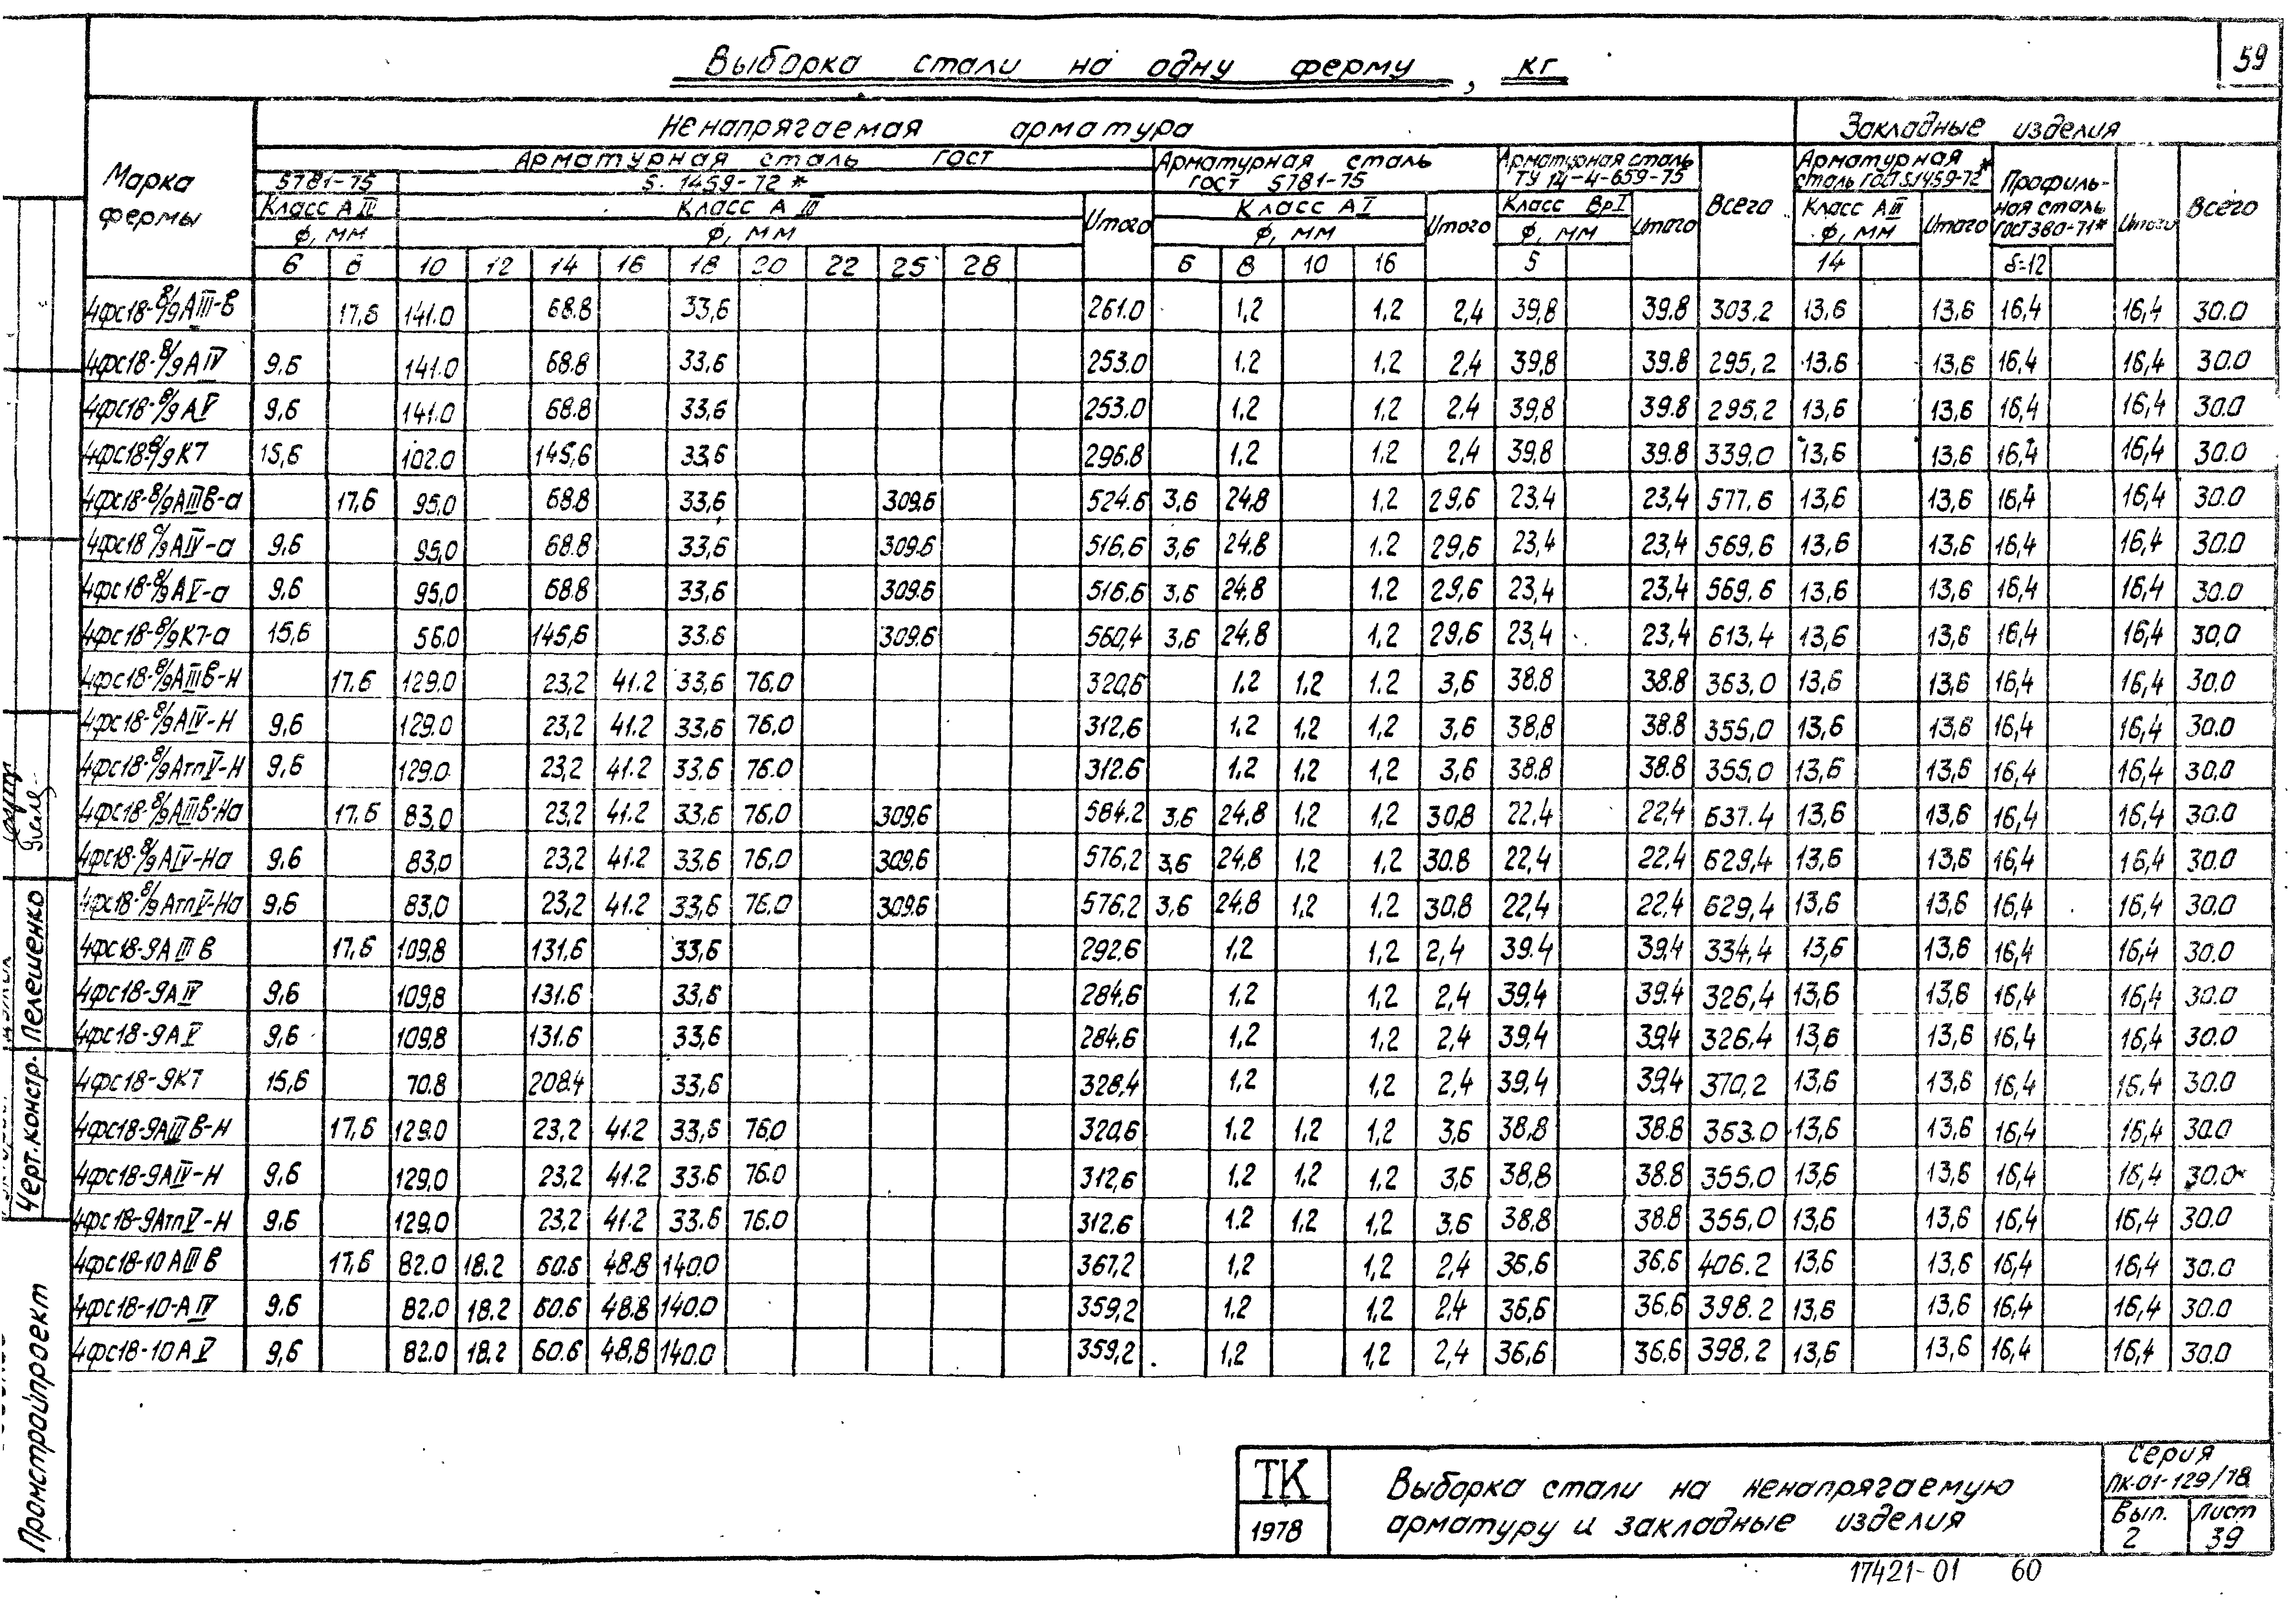 59
Выборка стали на одну ферму, кг
Марка фермы
Ненапрягаемая арматура
Закладные изделия
Арматурная сталь ГОСТ
5781-75
5.1459-72*
Класс А III
Класс А III
ф, мм
ф, мм
Итого
Арматурная сталь ГОСТ 5781-75
Класс А I
ф, мм
Итого
Арматурная сталь ТУ 14-4-659-75
Класс Вр I
ф, мм
Итого
Всего
Арматурная сталь ГОСТ 5.1459-72*
Класс А III
ф, мм
Итого
Профильная сталь ГОСТ 380-71*
Итого
Всего
6 8 10 12 14 16 18 20 22 25 28 6 8 10 16 5 14 δ-12
4фс18-8/9АIII-В 17,6 141.0 68.8 33,6 261.0 1,2 1,2 2,4 39,8 39.8 303.2 13,6 13,6 16,4 16,4 30.0
4фс18-8/9АIV 9,6 141.0 68.8 33,6 253.0 1.2 1,2 2,4 39,8 39.8 295,2 13,6 13,6 16,4 16,4 30.0
4фс18-8/9АV 9,6 141.0 68.8 33,6 253.0 1,2 1,2 2.4 39,8 39.8 295.2 13,6 13,6 16,4 16,4 30.0
4фс18-8/9К7 15,6 102.0 145,6 33,6 296.8 1.2 1.2 2,4 39,8 39.8 339,0 13,6 13,6 16,4 16,4 30.0
4фс18-8/9АIIIВ-а 17,6 95,0 68.8 33,6 309.6 524.6 3,6 24,8 1,2 29,6 23,4 23,4 577,6 13,6 13,6 16,4 16,4 30.0
4фс18-8/9АIV-а 9,6 95,0 68.8 33,6 309.6 516,6 3,6 24,8 1.2 29,6 23,4 23,4 569,6 13,6 13,6 16,4 16,4 30.0
4фс18-8/9АV-а 9,6 95,0 68.8 33,6 309.6 516.6 3,6 24,8 1.2 29,6 23,4 23,4 569,6 13,6 13,6 16,4 16,4 30.0
4фс18-8/9К7-а 15,6 56.0 145,6 33.6 309.6 560,4 3,6 24,8 1,2 29,6 23,4 23,4 613,4 13,6 13,6 16,4 16,4 30,0
4фс18-8/9АIIIВ-Н 17.6 129.0 23,2 41.2 33,6 76.0 320,6 1,2 1,2 1.2 3,6 38.8 38.8 363,0 13,6 13,6 16,4 16,4 30.0
4фс18-8/9АIV-Н 9,6 129.0 23,2 41.2 33,6 76.0 312,6 1,2 1,2 1,2 3,6 38,8 38.8 355,0 13,6 13,6 16,4 16,4 30.0
4фс18-8/9АтпV-Н 9,6 129.0 23,2 41.2 33,6 76.0 312.6 1,2 1,2 1,2 3,6 38.8 38.8 355,0 13,6 13,6 16,4 16,4 30.0
4фс18-8/9АIIIВ-На 17.6 83,0 23,2 41.2 33,6 76,0 309,6 584.2 3,6 24,8 1,2 1,2 30,8 22,4 22,4 637.4 13,6 13,6 16,4 16,4 30.0
4фс18-8/9АIV-На 9,6 83,0 23,2 41.2 33,6 76,0 309,6 576,2 3,6 24,8 1,2 1,2 30.8 22,4 22,4 629,4 13,6 13,6 16,4 16,4 30.0
4фс18-8/9АтпV-На 9,6 83,0 23,2 41.2 33,6 76.0 309.6 576,2 3,6 24,8 1,2 1.2 30,8 22,4 22,4 629,4 13,6 13,6 16,4 16,4 30.0
4фс18-9АIIIВ 17,6 109,8 131.6 33,6 292.6 1,2 1,2 2,4 39.4 39,4 334,4 13,6 13,6 16,4 16,4 30.0
4фс18-9АIV 9,6 109,8 131.6 33,6 284,6 1,2 1,2 2,4 39,4 39.4 326,4 13,6 13,6 16,4 16,4 30.0
4фс18-9АV 9,6 109,8 131.6 33,6 284.6 1,2 1,2 2,4 39,4 39,4 326.4 13,6 13,6 16,4 16,4 30.0
4фс18-9К7 15,6 70.8 208.4 33,6 328,4 1,2 1,2 2,4 39,4 39,4 370,2 13,6 13,6 16,4 16,4 30.0
4фс18-9АIIIВ-Н 17,6 129.0 23,2 41.2 33,6 76,0 320,6 1,2 1,2 1,2 3,6 38,8 38.8 363.0 13,6 13,6 16,4 16,4 30.0
4фс18-9АIV-Н 9,6 129,0 23,2 41.2 33.6 76.0 312,6 1,2 1,2 1,2 3,6 38,8 38.8 355.0 13,6 13,6 16,4 16,4 30.0
4фс18-9АтпV-Н 9,6 129,0 23,2 41.2 33.6 76.0 312.6 1.2 1.2 1,2 3,6 38.8 38.8 355,0 13,6 13,6 16,4 16,4 30.0
4фс18-10АIIIВ 17,6 82.0 18.2 60.6 48.8 140.0 367,2 1,2 1,2 2,4 36,6 36,6 406.2 13,6 13,6 16,4 16,4 30.0
4фс18-10-АIV 9,6 82.0 18.2 60.6 48.8 140.0 359,2 1,2 1,2 2,4 36,6 36,6 398.2 13,6 13,6 16,4 16,4 30.0
4фс18-10АV 9,6 82.0 18.2 60.6 48,8 140.0 359,2 1,2 1,2 2,4 36,6 36,6 398.2 13,6 13,6 16,4 16,4 30.0
Промстройпроект
Черт.констр. Пелешенко
ТК
1978
Выборка стали на ненапрягаемую
арматуру и закладные изделия
Серия
ПК-01-129/78
Вып.
2
Лист
39
17421-01 60